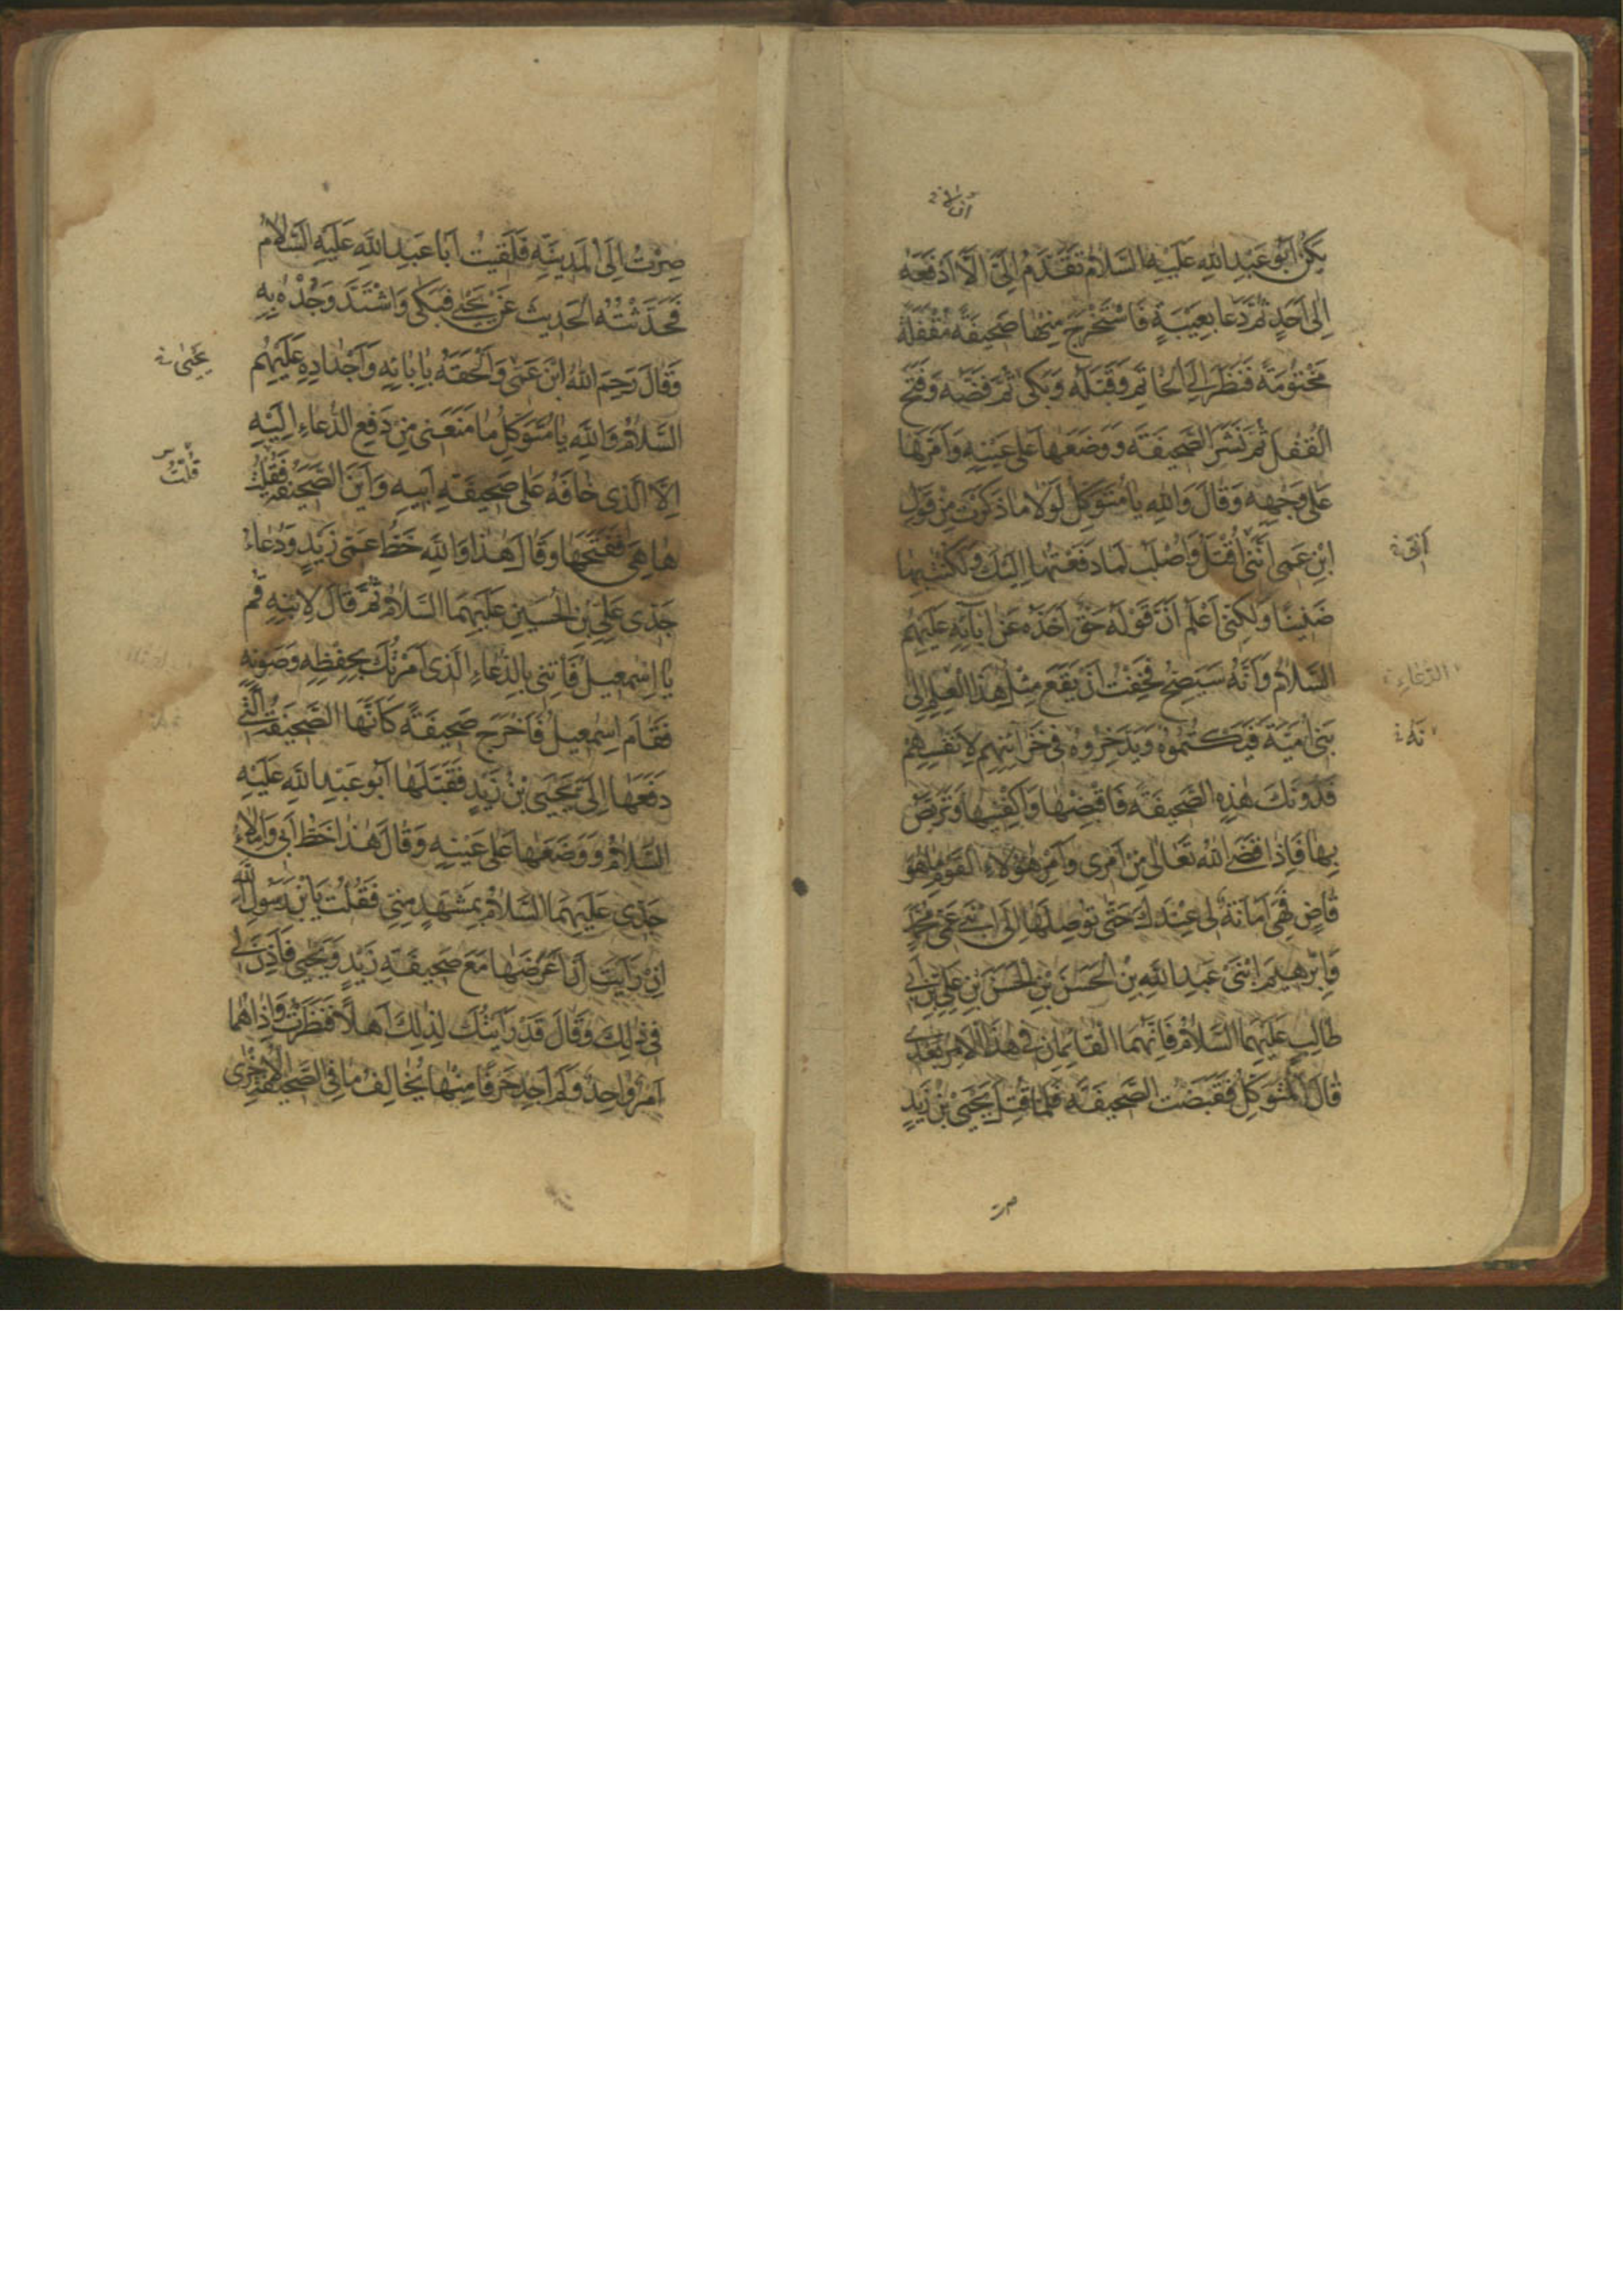 أن لا
يَكُنْ أَبُو عَبْدِ اللهِ عَلَيْهِ السَّلَامُ تَقَدَّمَ إِلَيَّ أَلَّا أَدْفَعَهُ
إِلَى أَحَدٍ ثُمَّ دَعَا بِعَيْبَةٍ فَاسْتَخْرَجَ مِنْهَا صَحِيفَةً مُقْفَلَةً
مَخْتُومَةً فَنَظَرَ إِلَى الْخَاتَمِ وَقَبَّلَهُ وَبَكَى ثُمَّ فَضَّهُ وَفَتَحَ
الْقُفْلَ ثُمَّ نَشَرَ الصَّحِيفَةَ وَوَضَعَهَا عَلَى عَيْنِهِ وَأَمَرَّهَا
عَلَى وَجْهِهِ وَقَالَ وَاللهِ يَا مُتَوَكِّلُ لَوْلَا مَا ذَكَرْتَ مِنْ قَوْلِ
ابْنِ عَمِّي أَنَّنِي أُقْتَلُ وَأُصْلَبُ لَمَا دَفَعْتُهَا إِلَيْكَ وَلَكُنْتُ بِهَا
أني
ضَنِينًا وَلَكِنِّي أَعْلَمُ أَنَّ قَوْلَهُ حَقٌّ أَخَذَهُ عَنْ آبَائِهِ عَلَيْهِمُ
السَّلَامُ وَأَنَّهُ سَيَصِحُّ فَخِفْتُ أَنْ يَقَعَ مِثْلُ هَذَا الْعِلْمِ إِلَى
الدعاء
بَنِي أُمَيَّةَ فَيَكْتُمُوهُ وَيَدَّخِرُوهُ فِي خَزَائِنِهِمْ لِأَنْفُسِهِمْ
فَدُونَكَ هَذِهِ الصَّحِيفَةَ فَاقْبِضْهَا وَاكْفِنِيهَا وَتَرَبَّصْ
بِهَا فَإِذَا قَضَى اللهُ تَعَالَى مِنْ أَمْرِي وَأَمْرِ هَؤُلَاءِ الْقَوْمِ مَا هُوَ
قَاضٍ فَهِيَ أَمَانَةٌ لِي عِنْدَكَ حَتَّى تُوصِلَهَا إِلَى ابْنَيْ عَمِّي مُحَمَّدٍ
وَإِبْرَهِيمَ ابْنَيْ عَبْدِ اللهِ بْنِ الْحَسَنِ بْنِ الْحَسَنِ بْنِ عَلِيِّ بْنِ أَبِي
طَالِبٍ عَلَيْهِمَا السَّلَامُ فَإِنَّهُمَا الْقَائِمَانِ فِي هَذَا الْأَمْرِ بَعْدِي
قَالَ الْمُتَوَكِّلُ فَقَبَضْتُ الصَّحِيفَةَ فَلَمَّا قُتِلَ يَحْيَى بْنُ زَيْدٍ
صرت
صِرْتُ إِلَى الْمَدِينَةِ فَلَقِيتُ أَبَا عَبْدِ اللهِ عَلَيْهِ السَّلَامُ
فَحَدَّثْتُهُ الْحَدِيثَ عَنْ يَحْيَى فَبَكَى وَاشْتَدَّ وَجْدُهُ بِهِ
وَقَالَ رَحِمَ اللهُ ابْنَ عَمِّي وَأَلْحَقَهُ بِآبَائِهِ وَأَجْدَادِهِ عَلَيْهِمُ
يحيى
السَّلَامُ وَاللهِ يَا مُتَوَكِّلُ مَا مَنَعَنِي مِنْ دَفْعِ الدُّعَاءِ إِلَيْهِ
إِلَّا الَّذِي خَافَهُ عَلَى صَحِيفَةِ أَبِيهِ وَأَيْنَ الصَّحِيفَةُ فَقُلْتُ
قُلْتُ
هَا هِيَ فَفَتَحَهَا وَقَالَ هَذَا وَاللهِ خَطُّ عَمِّي زَيْدٍ وَدُعَاءُ
جَدِّي عَلِيِّ بْنِ الْحُسَيْنِ عَلَيْهِمَا السَّلَامُ ثُمَّ قَالَ لِابْنِهِ قُمْ
يَا إِسْمَعِيلُ فَأْتِنِي بِالدُّعَاءِ الَّذِي أَمَرْتُكَ بِحِفْظِهِ وَصَوْنِهِ
فَقَامَ إِسْمَعِيلُ فَأَخْرَجَ صَحِيفَةً كَأَنَّهَا الصَّحِيفَةُ الَّتِي
دَفَعَهَا إِلَيَّ يَحْيَى بْنُ زَيْدٍ فَقَبَّلَهَا أَبُو عَبْدِ اللهِ عَلَيْهِ
السَّلَامُ وَوَضَعَهَا عَلَى عَيْنِهِ وَقَالَ هَذَا خَطُّ أَبِي وَإِمْلَاءُ
جَدِّي عَلَيْهِمَا السَّلَامُ بِمَشْهَدٍ مِنِّي فَقُلْتُ يَا بْنَ رَسُولِ اللهِ
إِنْ رَأَيْتَ أَنْ أَعْرِضَهَا مَعَ صَحِيفَةِ زَيْدٍ وَيَحْيَى فَأَذِنَ لِي
فِي ذَلِكَ وَقَالَ قَدْ رَأَيْتُكَ لِذَلِكَ أَهْلًا فَنَظَرْتُ وَإِذَا هُمَا
أَمْرٌ وَاحِدٌ وَلَمْ أَجِدْ حَرْفًا مِنْهَا يُخَالِفُ مَا فِي الصَّحِيفَةِ الْأُخْرَى